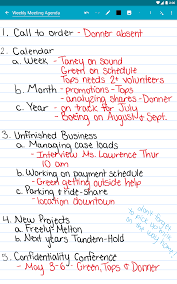 Weekly Meeting Agenda
1. Call to order - Donner absent
2. Calendar
a. Week - Taney on sound
Green on schedule
Tops needs 2+ volunteers
b. Month - promotions - Tops
- analyzing shares - Donner
c. Year - on track for July
Boeing on August + Sept.
3. Unfinished Business
a. Managing case loads
- Interview Ms. Lawrence Thur
10 am
b. Working on payment schedule
- Green getting outside help
c. Parking + ride-share
- location downtown
4. New Projects
a. Freely-Melton
b. Next years Tandem-Hold
don't forget
to pick up
the
5. Confidentiality Conference
- May 3-6 - Green, Tops + Donner